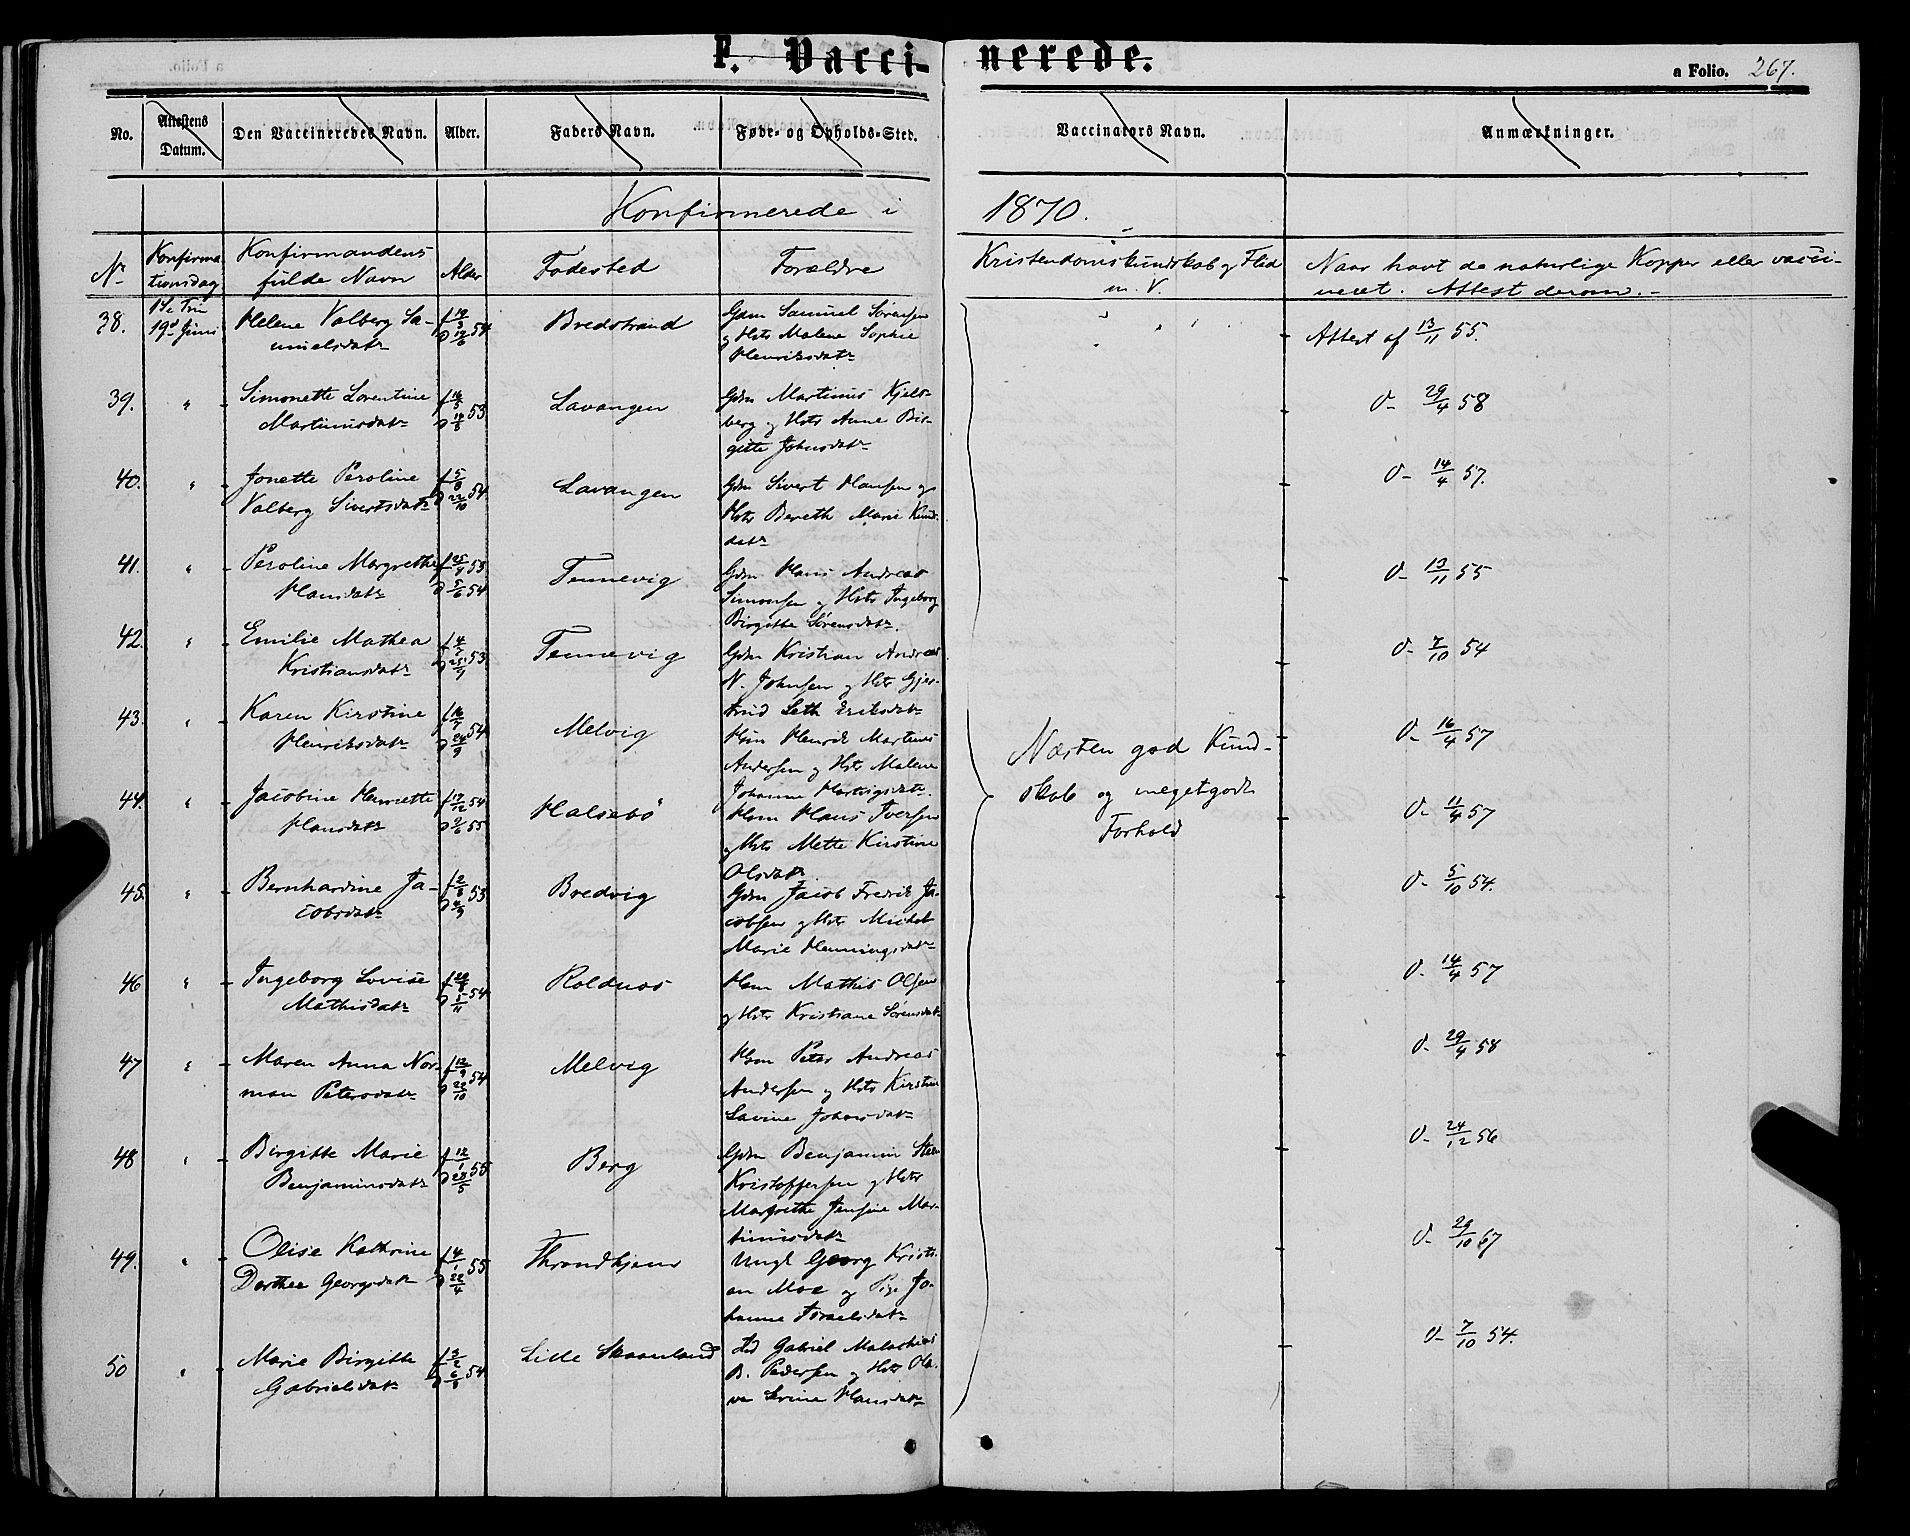 F. Vaccinerede.
a Folio. 267.
No. Attestens Datum. Den Vaccineredes Navn. Alder. Faders Navn. Føde- og Opholds-Sted. Vaccinators Navn. Anmærkninger.
Konfirmerede i 1870.
Nr Konfirmationsdag Konfirmandens fulde Navn Alder Fødested Forældre Kristendomskundskab og Flid m. V. Naar havt de naturlige Kopper eller vaccineret. Attest derom.-
38. 19d Juni Helene Valborg Sa-
muelsdatr
f 54 Bredstrand
Gdm Samuel Sørensen
og Hstr Malene Sophie
Henriksdatr
Attest af 13/11 55.
39. " Simonette Lorentine
Martinusdatr
53 Lavangen
Gdm Martinus Kjels-
berg og Hstr Anne Bir-
gitte Johnsdatr
D- 29/4 58
40. " Jonette Peroline
Valberg Sivertsdatr
f 5/8 D 22/10 54. Lavangen
Gdm Sivert Hansen og
Hstr Bereth Marie Knud-
datr
D- 14/4 57.
41. " Peroline Margrethe
Hansdatr
f 53
D 5/6 54
Tennevig
Gdm Hans Andreas
Simonsen og Hstr Ingeborg
Birgitte Sørensdatr.
D- 13/11 55
42. " Emilie Mathea
Kristiansdatr
53 Tennevig
Gdm Kristian Andreas
N. Johnsen og Hstr Gjer-
trud Seth Eriksdatr
D- 7/10 54
43. " Karen Kirstine
Henriksdatr
f 16/7 D 24/9 54 Melvig
Hm Henrik Martinus
Andersen og Hstr Malene
Johanna Hartvigsdatr.
D- 16/4 57
44. " Jacobine Henriette
Hansdatr
54
55
Halsebø
Hm Hans Iversen
og Hstr Mette Kirstine
Olsdatr
D- 11/4 57
Næsten god Kund-
skab og megetgodt
Forhold
45. " Bernhardine Ja-
cobsdatr
53 Bredvig
Gdm Jacob Fredrik Ja-
cobsen og Hstr
Marie Henningsdatr
D- 5/10 54.
46 " Ingeborg Lovise
Mathisdatr
54 Roldnæs
Hm Mathis Olsen
og Hstr Kristiane Sørensdatr
D- 14/4 57
47 " Maren Anna Nor-
man Petersdatr
f 12/9 D 20/10 54 Melvig
Hm Peter Andreas
Andersen og Hstr Kirstine
Lavine Johnsdatr
D- 29/4 58
48 " Birgitte Marie
Benjaminsdatr
f 12/1 D 28/5 55 Berg
Gdm Benjamin Steen
Kristoffersen og Hstr
Margrethe Jensine Mar-
tinusdatr
D- 24/12 56
49. " Olise Kathrine
Dorthea Georgsdatr
f 4/1 D 22/4 55 Throndhjem
Ungk Georg Kristi-
an Moe og Pige Jo-
hanne Israelsdatr
D- 29/10 67
50 " Marie Birgitte
Gabrielsdatr
54 Lille Skaanland
Gabriel Malachias
B. Pedersen og Hstr Ola-
va Serine Hansdatr
D- 7/10 54.